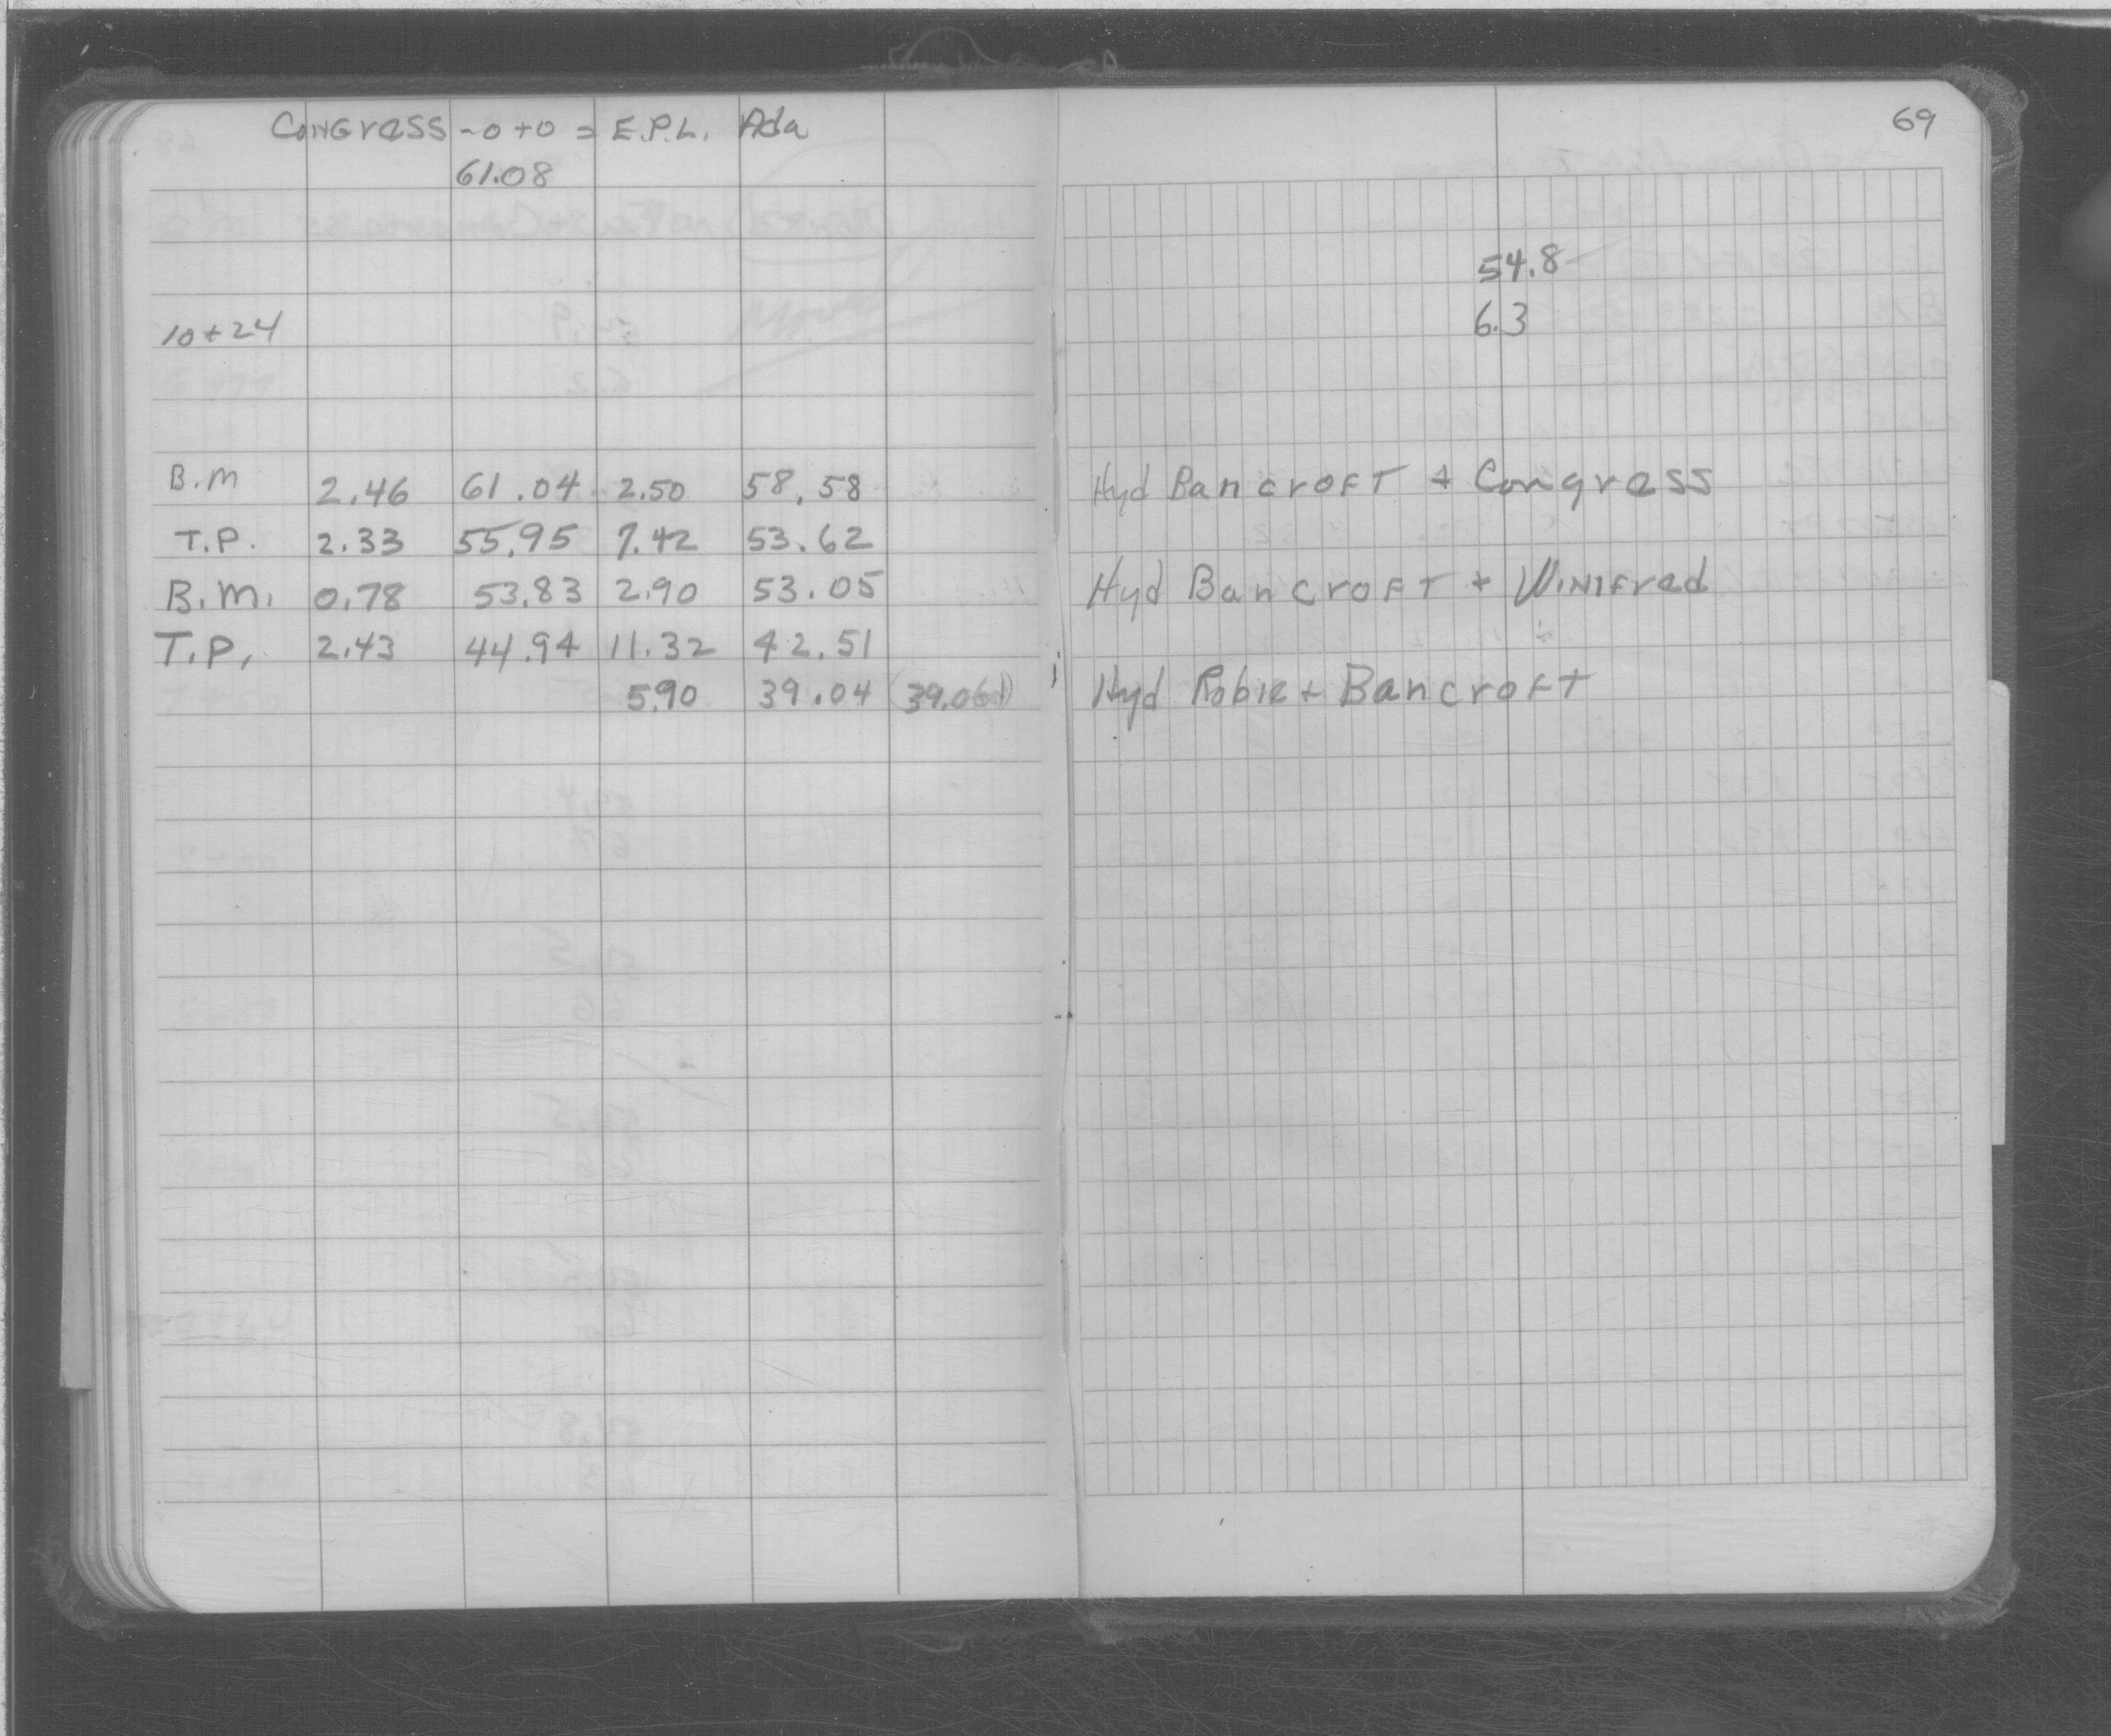 69
Congress -0+0 = E.P.L. Ada
61.08
54.8
10+24 6.3
B.M 2.46 61.04 2.50 58.58 Hyd Bancroft + Congress
T.P. 2.33 55.95 7.42 53.62
B.M. 0.78 53.83 2.90 53.05 Hyd Bancroft + Winifred
T.P. 2.43 44.94 11.32 42.51
5.90 39.04 (39.061) Hyd Robie + Bancroft